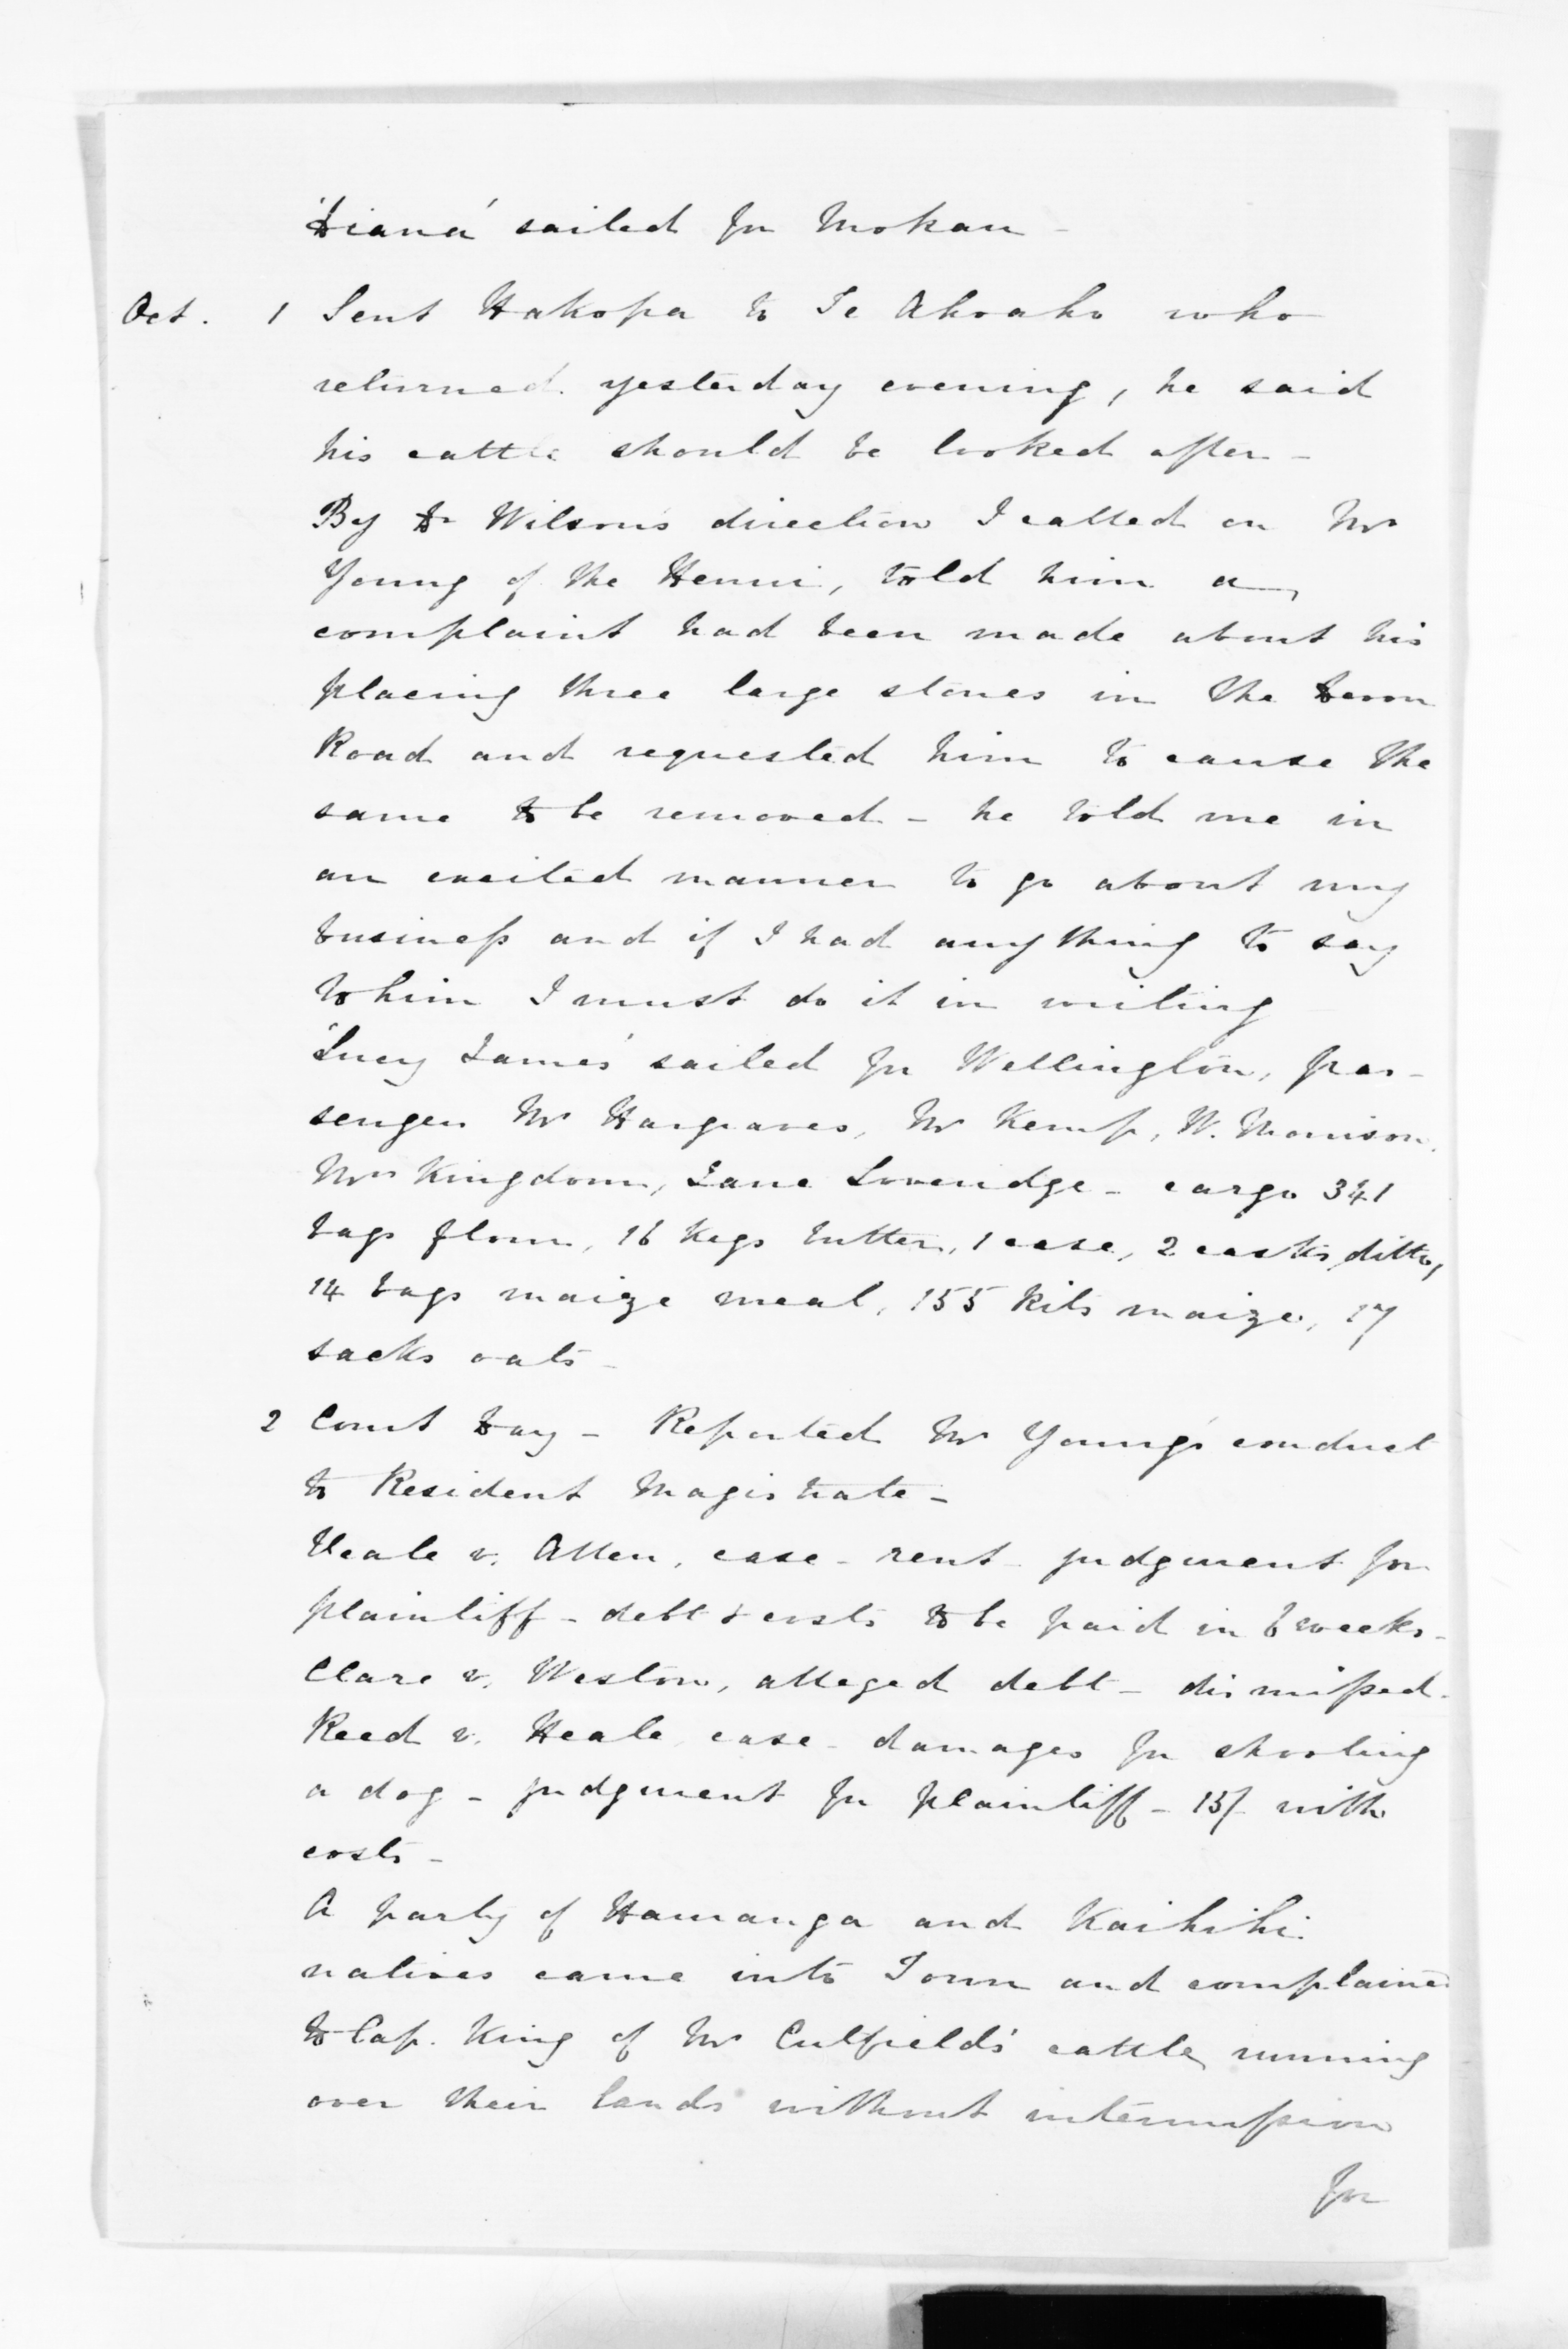 'Diana' sailed for Mokau -
Oct. 1 Sent Hakopa to Te Ahoaho who
returned yesterday evening, he said
his cattle should be looked after -
By Dr Wilson's direction I called on Mr
Young of the Henui, told him a
complaint had been made about his
placing three large stones in the Devon
Road and requested him to cause the
same to be removed - he told me in
an excited manner to go about my
business and if I had anything to say
to him I must do it in writing -
'Lucy James' sailed for Wellington, pas-
sengers Mr Hargraves, Mr Kemp, W. Morrison.
Mrs Kingdom, Jane Loveridge - cargo 341
bags flour, 16 kegs butter, 1 case, 2 casks ditto,
14 bags maize meal, 155 kits maize, 17
sacks oats -
2 Court Day - Reported Mr Young's conduct
to Resident Magistrate -
Veale v. Allen, case - rent - judgment for
plaintiff - debt & costs to be paid in 6 weeks -
Clare v. Weston, alleged debt - dismissed -
Reed v. Heale case - damages for shooting
a dog - judgment for plaintiff - 15/- with
costs -
A party of Hauranga and Kaihihi
natives came into Town and complained
to Cap. King of Mr Cutfield's cattle running
over their lands without intermission
for